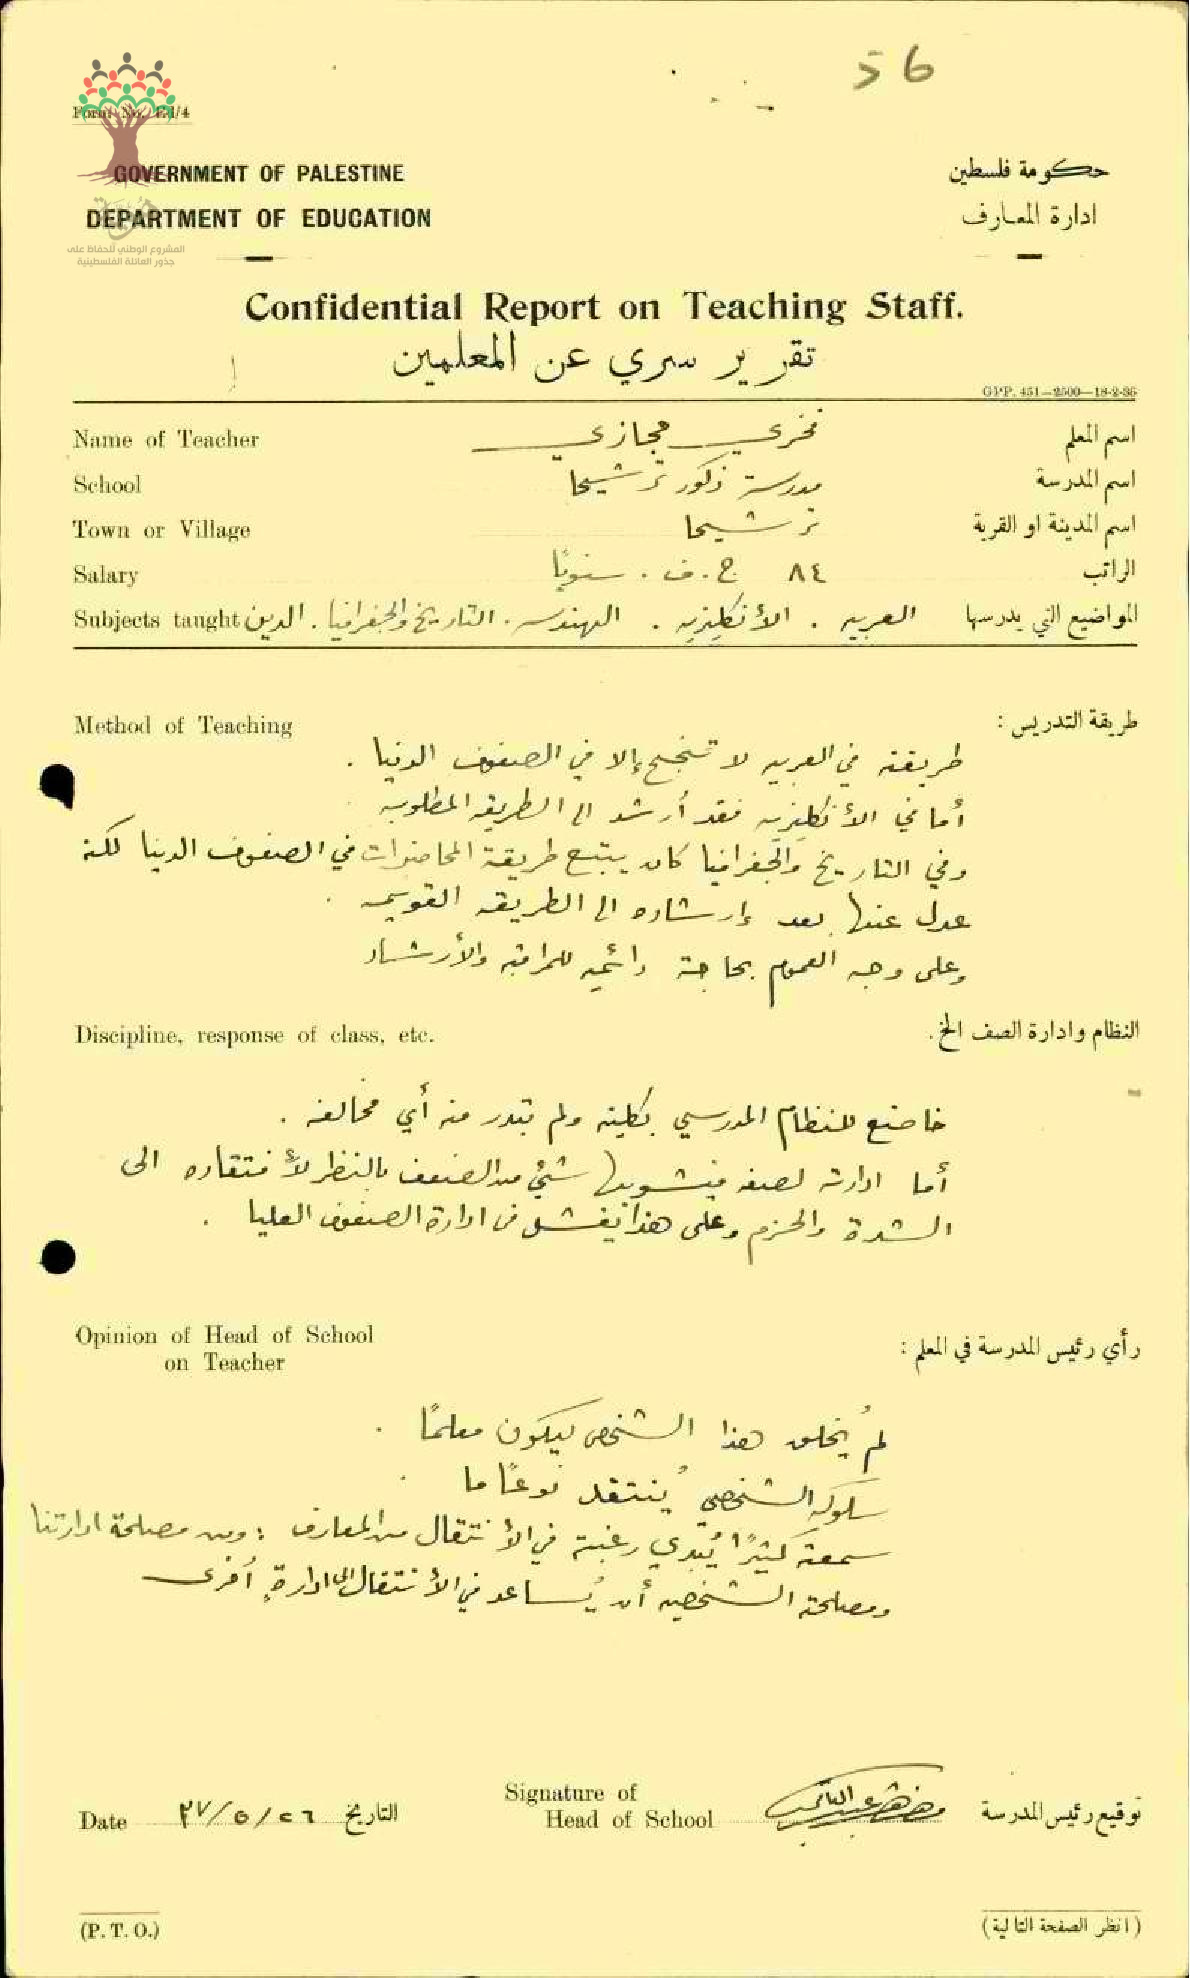 56
Form No. Ed/4
GOVERNMENT OF PALESTINE
حكومة فلسطين
DEPARTMENT OF EDUCATION
ادارة المعارف
هوية
المشروع الوطني للحفاظ على
جذور العائلة الفلسطينية
Confidential Report on Teaching Staff.
تقرير سري عن المعلمين
GPP. 451—2500—18-2-36
Name of Teacher فخري حجازي اسم المعلم
School مدرسة ذكور ترشيحا اسم المدرسة
Town or Village ترشيحا اسم المدينة او القرية
Salary ٨٤ ج. ف. سنويًا الراتب
Subjects taught العربيه . الأنكليزيه . الهندسه . التاريخ والجغرافيا . الدين المواضيع التي يدرسها
Method of Teaching طريقة التدريس :
طريقته في العربيه لا تنجح إلا في الصفوف الدنيا .
أما في الأنكليزيه فقد أرشد الى الطريقه المطلوبه
وفي التاريخ والجغرافيا كان يتبع طريقة المحاضرات في الصفوف الدنيا لكنه
عدل عنها بعد إرشاده الى الطريقه القويمه .
وعلى وجه العموم بحاجة دائميه للمراقبه والأرشاد
Discipline, response of class, etc. النظام وادارة الصف الخ.
خاضع للنظام المدرسي بكليته ولم تبدر منه أي مخالفه .
أما ادارته لصفه فيشوبها شئ من الضعف بالنظر لأفتقاره الى
الشدة والحزم وعلى هذا يفشل في ادارة الصفوف العليا .
Opinion of Head of School رأي رئيس المدرسة في المعلم :
on Teacher
لم يُخلق هذا الشخص ليكون معلمًا .
سلوكه الشخصي يُنتقد نوعًا ما .
سمعته كثيرًا يُبدي رغبته في الأنتقال من المعارف ; ومن مصلحة ادارتنا
ومصلحته الشخصيه أن يُساعد في الأنتقال الى ادارةٍ أخرى
Signature of
Date ٢٦/٥/٣٧ التاريخ Head of School توقيع رئيس المدرسة
(P. T. O.) (انظر الصفحة التالية)